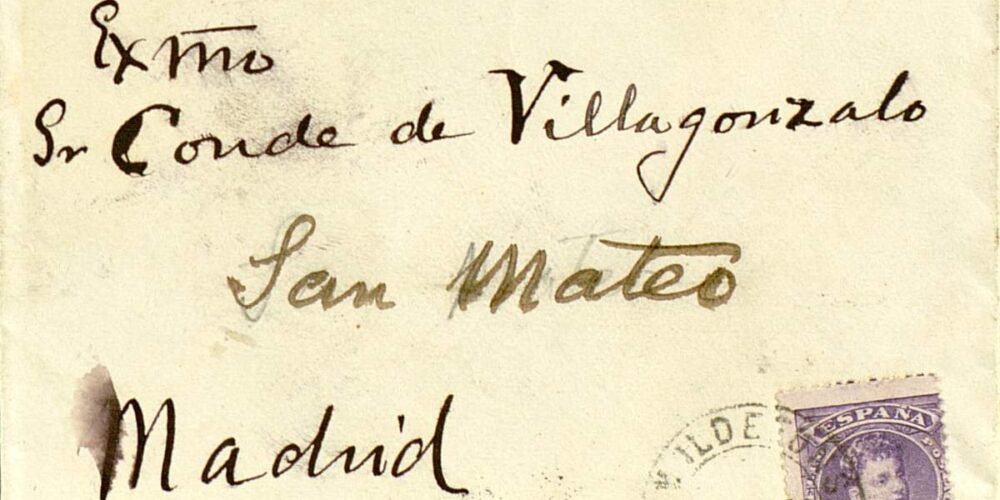 Exmo
Sr Conde de Villagonzalo
San Mateo
Madrid
ILDE
ESPAÑA